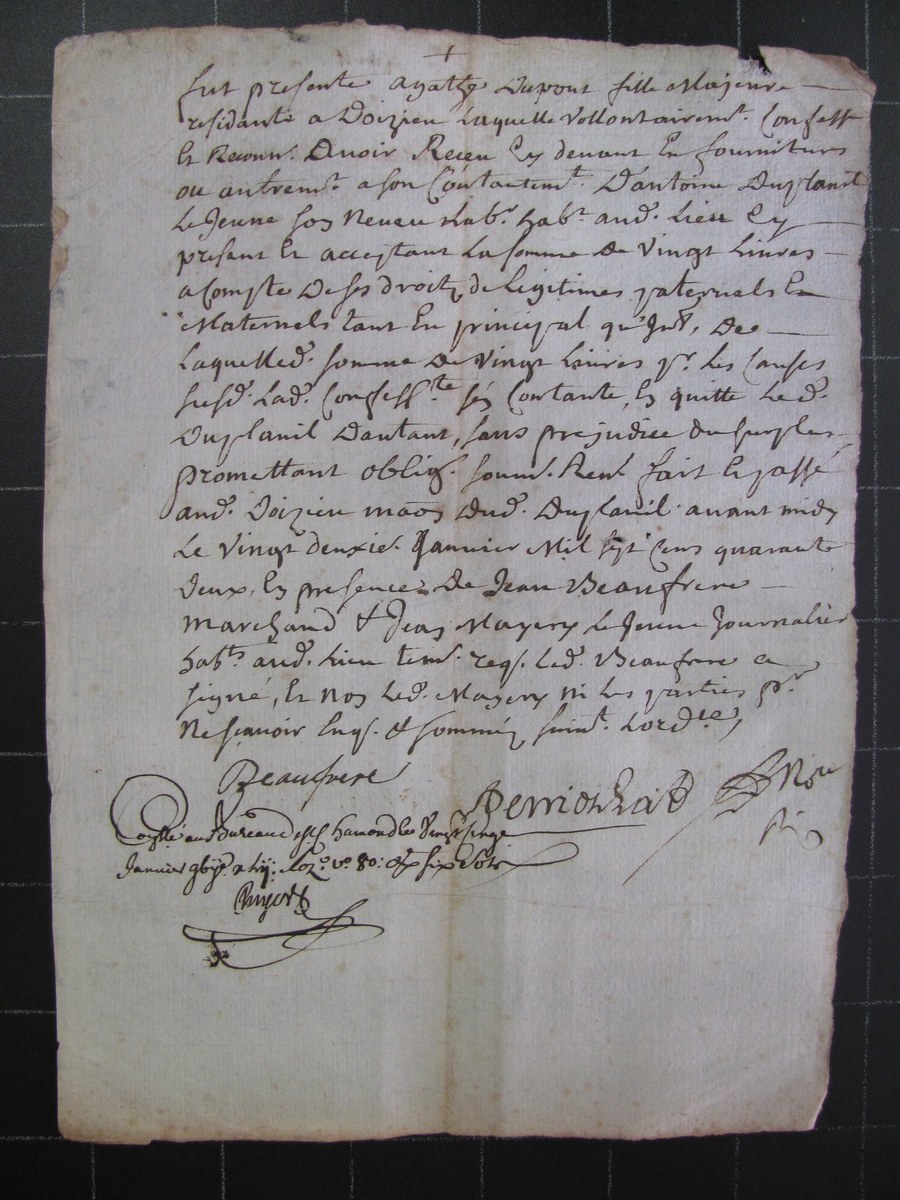 +
fut presente agathe Dupont fille Majeure
residante a Doizieu Laquelle vollontairemt. Confesse
Et Reconn. Avoir Receu Cy devant En fournitures
ou autremt. a son Contantemt. D'antoine Duplanil
Le Jeune son Neveu Labr. habt. aud. Lieu Cy
present Et acceptant La somme de vingt Livres
a Compte De ses droitz de Legitimes paternels Et
Maternels tant En principal qu'Intt. De
Laquelled. somme de vingt Livres pr. les Causes
susd. Lad. Confessте s'est Contante, Et quitte Led.
Duplanil D'autant, sans prejudice du surplus
promettant oblig. soum. Ren. fait Et passé
aud. Doizieu maon Dud. Duplanil avant midy
Le vingt deuxie. Janvier Mil sept Cens quarante
deux, En presences de Jean Beaufrere
marchand & Jean Mayery Le Jeune Journalier
habts. aud. Lieu tem. req. Led. Beaufrere a
signé, Et non Led. Mayery ni Les parties pr.
Ne sçavoir Enq. & sommés suivt. Lordce,
Beaufrere
au Bureau de St Chamond le Vingt
Janvier vo. 80: six sols